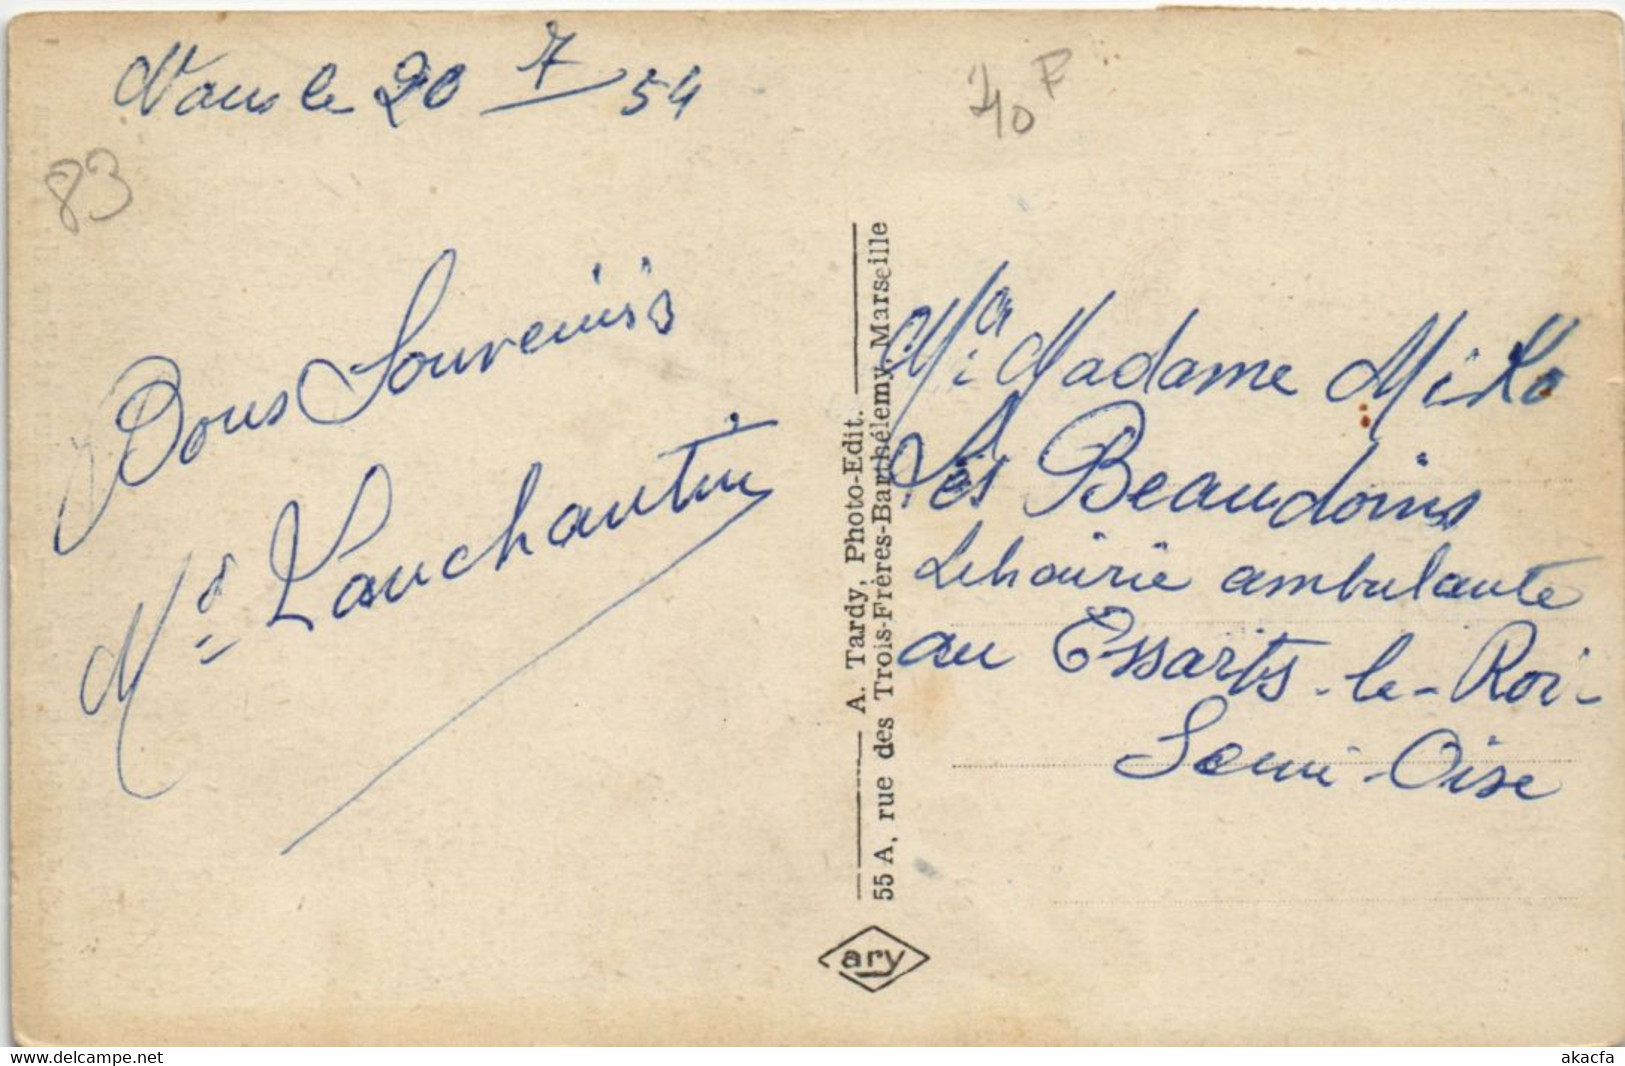 le 20 7 54
40 F
83
Bons Souvenirs
Md Lanchantin
A. Tardy, Photo-Edit.
55 A, rue des Trois-Frères-Barthélemy, Marseille
Madame Miko
Les Beaudoins
ambulante
au Essarts-le-Roi-
Seine-Oise
ary
www.delcampe.net
akacfa